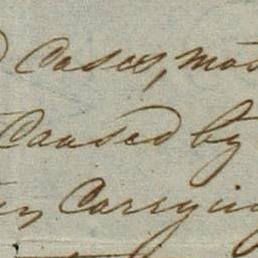 Cases, mos
Caused by
Carrying